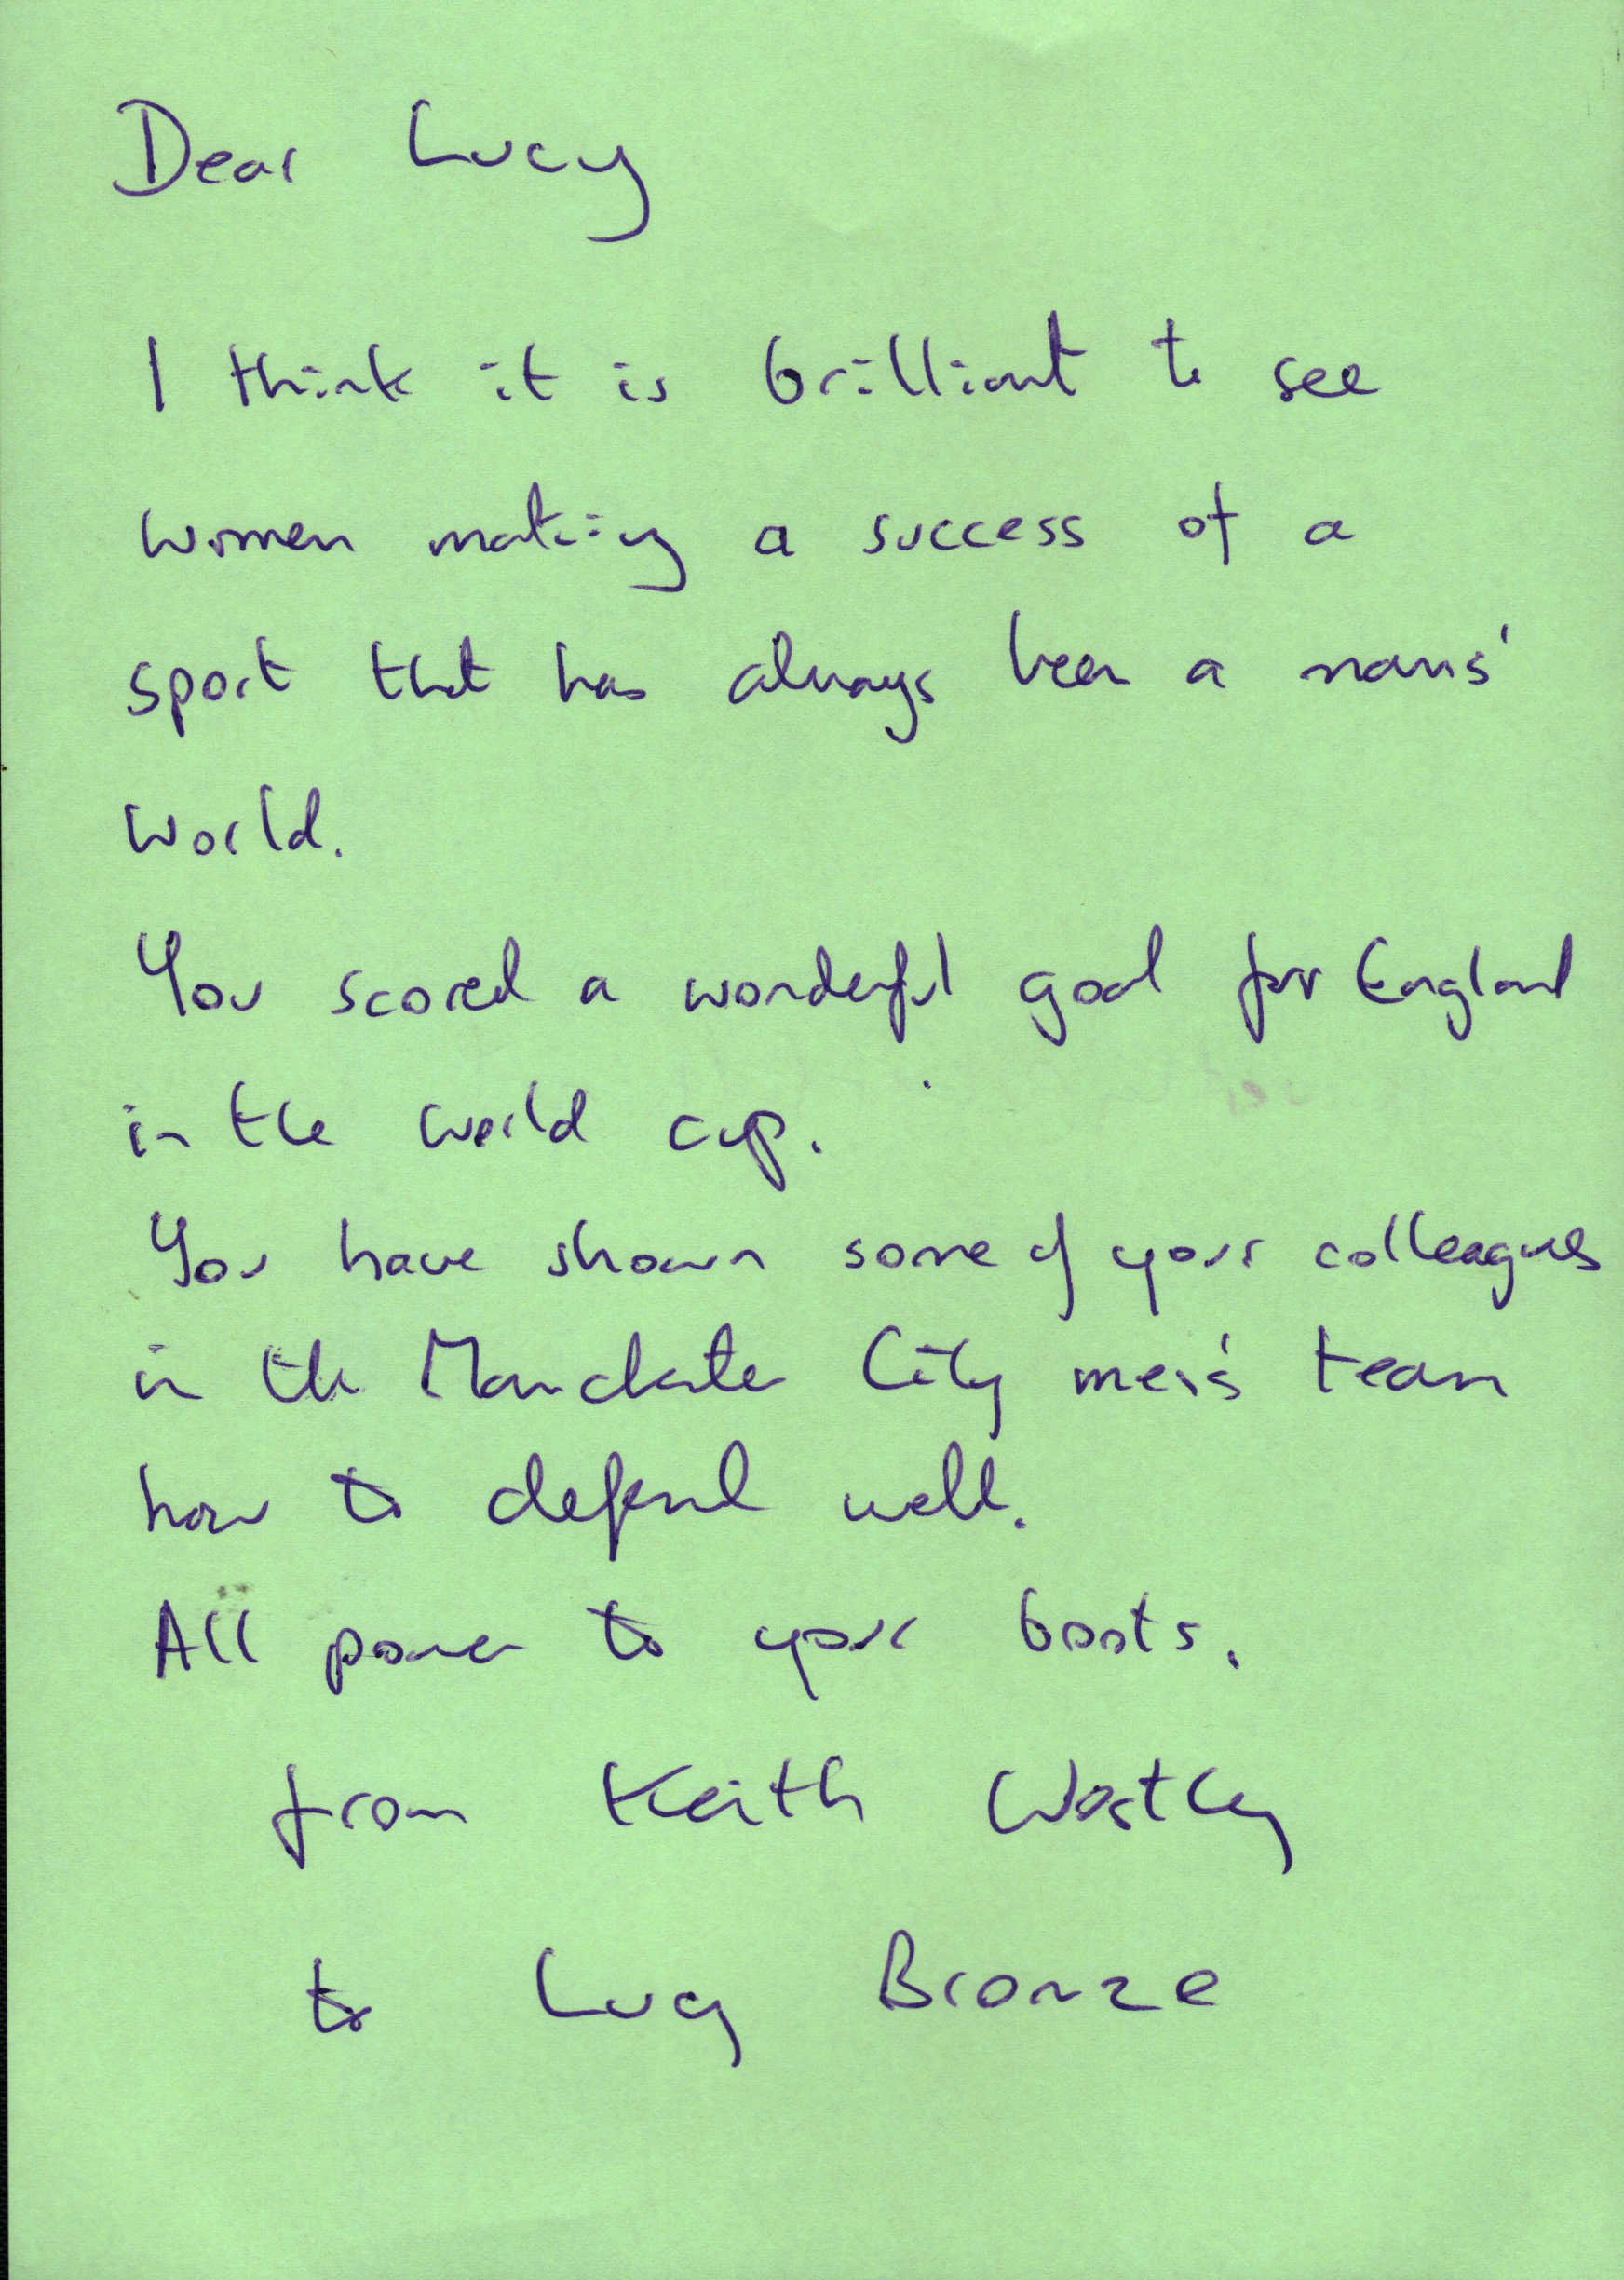 Dear Lucy
I think it is brilliant to see
women making a success of a
sport that has always been a mans'
world.
You scored a wonderful goal for England
in the world cup.
You have shown some of your colleagues
in the Manchester City men's team
how to defend well.
All power to your boots.
from Keith Wastley
to Lucy Bronze